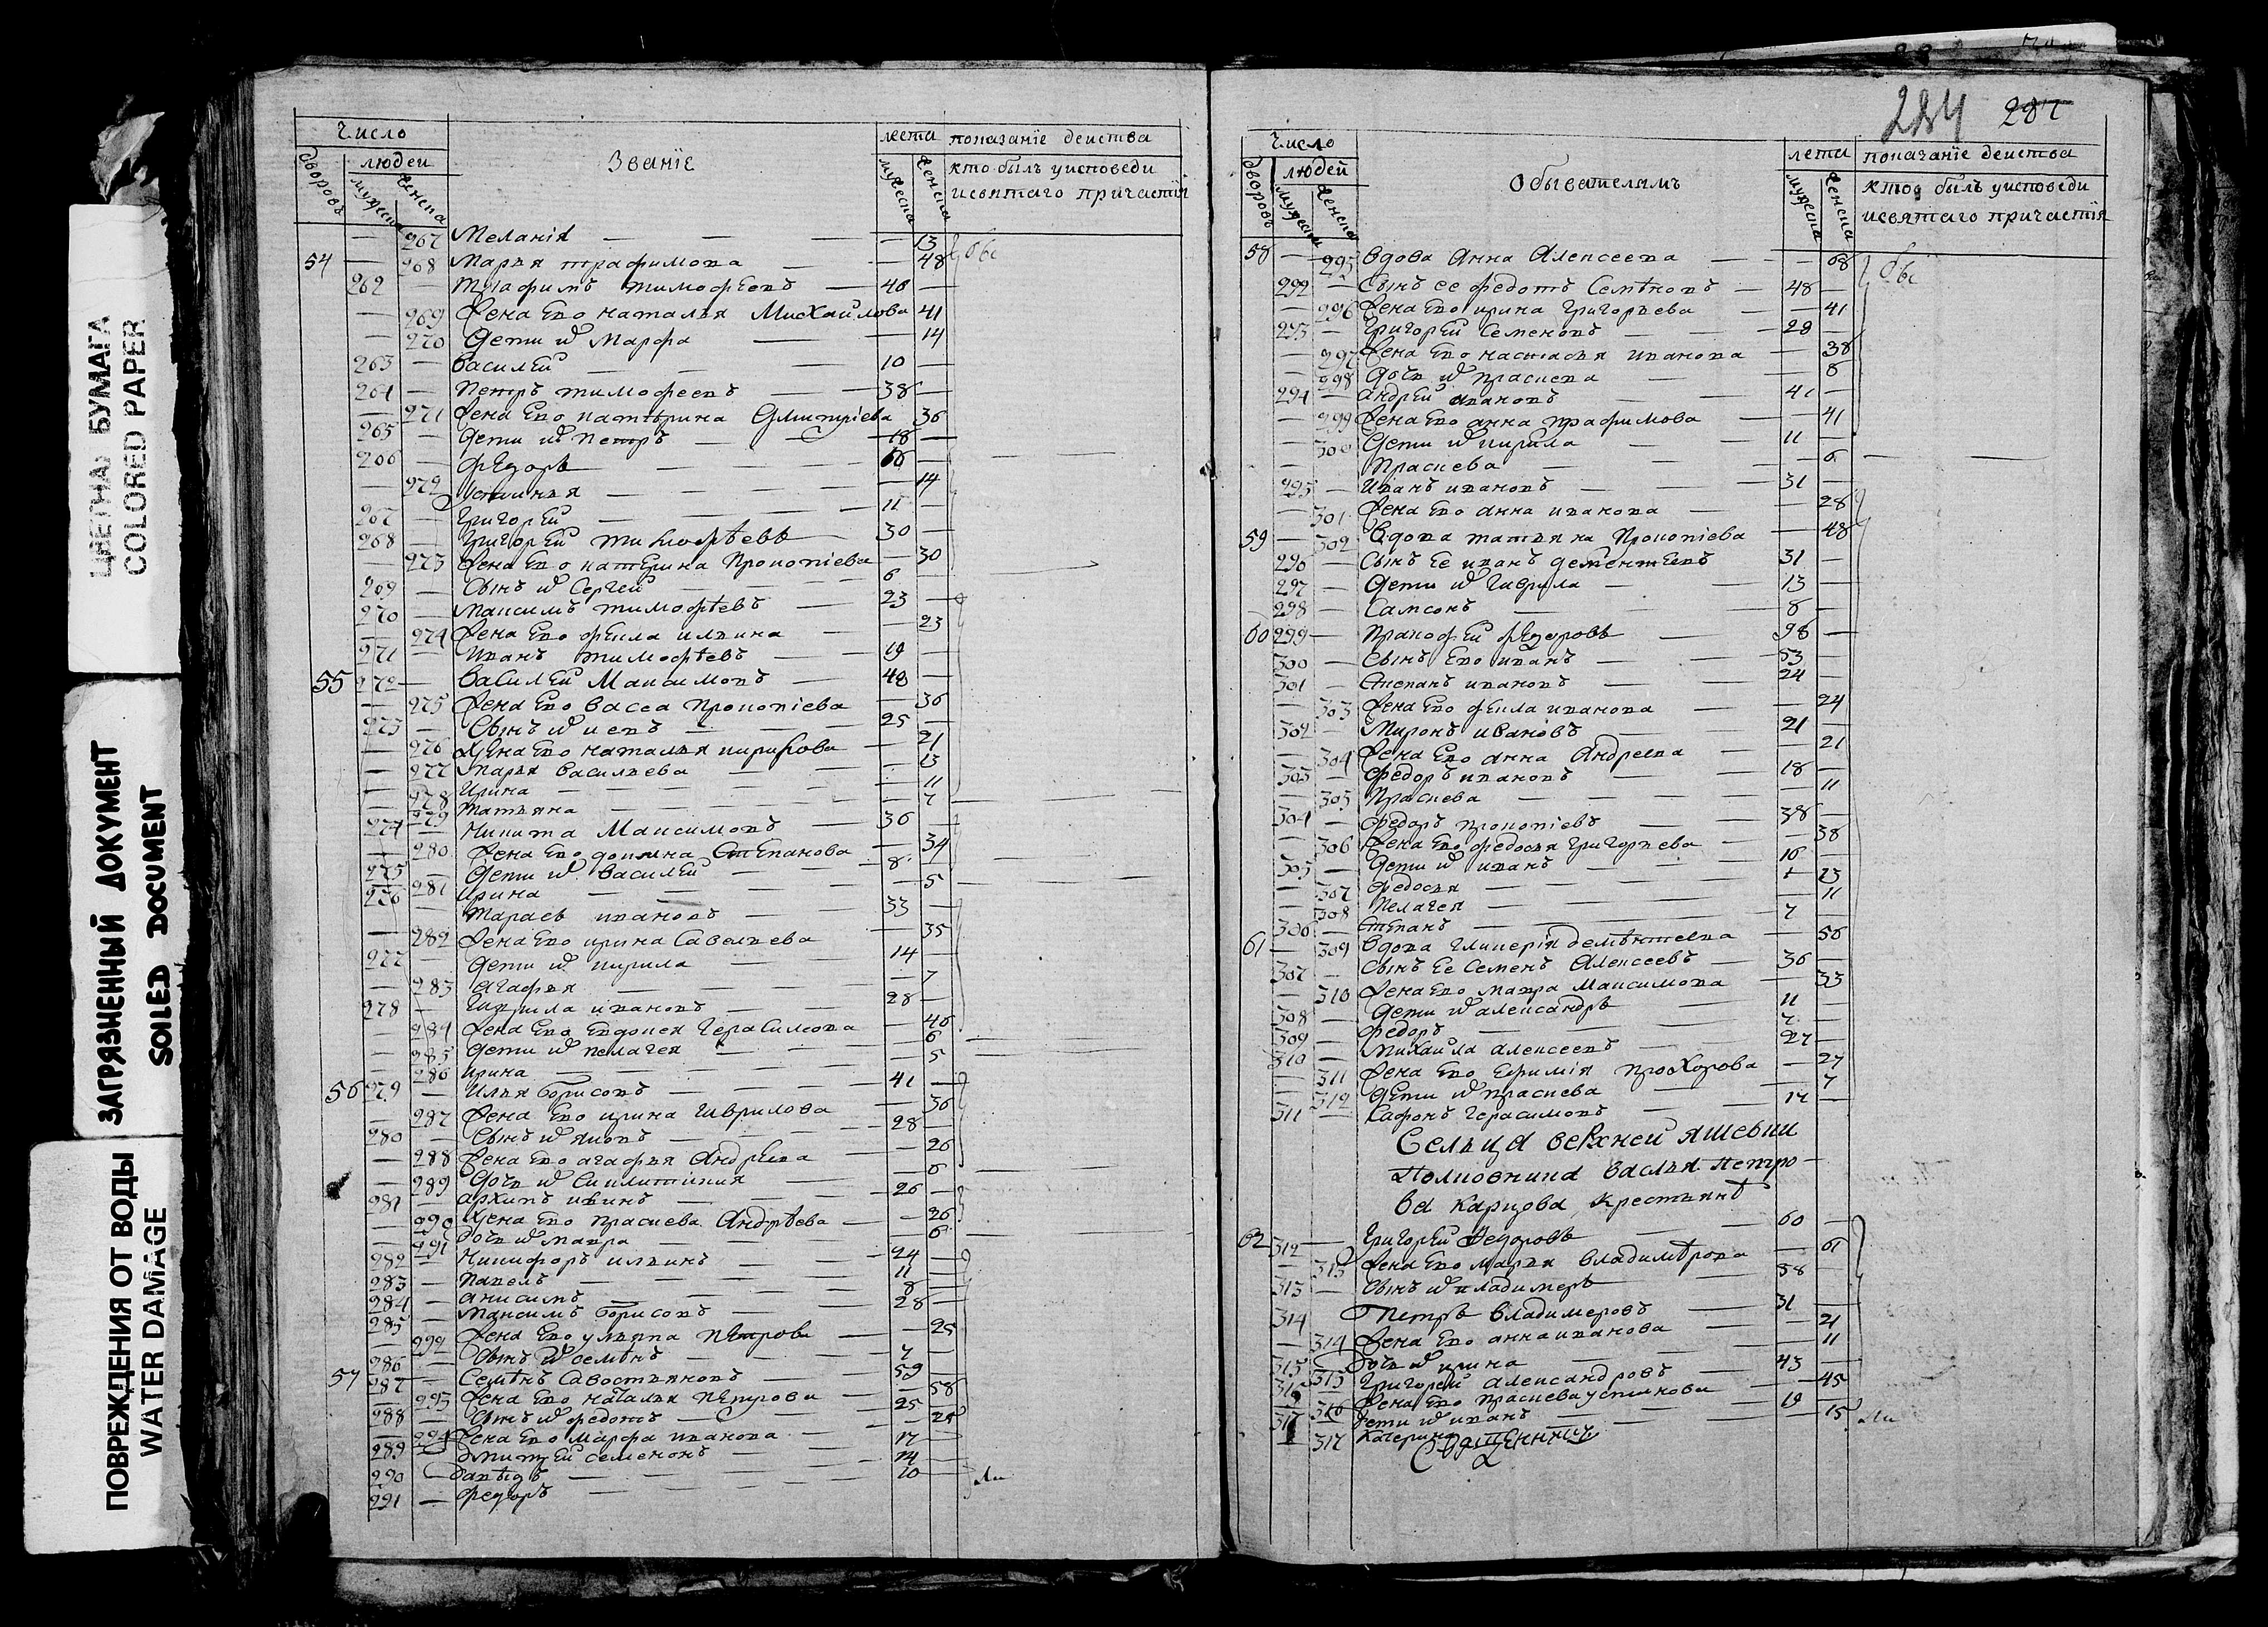 ЦВЕТНАЯ БУМАГА
COLORED PAPER
ЗАГРЯЗНЕННЫЙ ДОКУМЕНТ
SOILED DOCUMENT
ПОВРЕЖДЕНИЯ ОТ ВОДЫ
WATER DAMAGE
Число Званїе лета показанїе деиства
дворовъ людей мужеска женска мужеска женска кто былъ уисповеди
исвятаго причастїя
— 267 Меланїя — 13
54 — 268 Марья трафимова — 48
262 — трафимъ тимофѣевъ 46 —
— 269 Жена Ево наталья Михаилова 41
— 270 Дети их Марфа — 14
263 — Василей 10 —
264 — Петръ тимофеевъ 38 —
— 271 Жена Ево катерина Дмитрїева 36
265 — Дети их Петръ 18 —
266 — Федоръ —
— 272 Устинья — 14
267 — Григорей 11 —
268 — Григорей тимофѣевъ 30 —
— 273 Жена Ево катерина Прокопїева — 30
269 — Сынъ их Сергей 6 —
270 — Максимъ тимофѣевъ 23 —
— 274 Жена Ево фекла ильина — 23
271 — Иванъ тимофѣевъ 19 —
55 272 — Василей Максимовъ 48 —
— 275 Жена Ево Васса Прокопїева — 36
273 — Сынъ их 25 —
— 276 Жена Ево наталья кирилова — 21
— 277 Марья Васильева — 13
— 278 Ирина — 11
— 279 Татьяна — 7
274 — Никита Максимовъ 36 —
— 280 Жена Ево Степанова — 34
275 — Дети их Василей 8 —
— 281 Ирина — 5
276 — Тарасъ ивановъ 33 —
— 282 Жена Ево ирина Савельева — 35
277 — Дети их кирила 14 —
— 283 Агафья — 7
278 — Гаврила ивановъ 28 —
— 284 Жена Ево Евдокея Герасимова —
— 285 Дети их пелагея — 6
— 286 Ирина — 5
56 279 — Илья борисовъ 41 —
— 287 Жена Ево ирина Гаврилова — 36
280 — Сынъ их яковъ 28 —
— 288 Жена Ево агафья Андреева — 26
— 289 Дочь их — 6
281 — архипъ 26 —
— 290 Жена Ево Праскева Андрѣева — 26
— 291 Дочь их мавра — 6
282 — Никифоръ ильинъ 24 —
283 — Павелъ 11 —
284 — анисимъ 8 —
285 — Максимъ борисовъ 28 —
— 292 Жена Ево ульяна Петрова — 25
286 — Сынъ их семѣнъ 7 —
57 287 — Семѣнъ Савостьяновъ 59 —
— 293 Жена Ево наталья Петрова — 58
288 — Сынъ их федотъ 25 —
— 294 Жена Ево Марфа иванова —
289 — Дмитрей семеновъ 17 —
290 — Давыдъ 14 —
291 — Федоръ 10 —
284 287
Число Обывателямъ лета показанїе деиства
дворовъ людей мужеска женска мужеска женска ктоѡ былъ уисповеди
исвятаго причастїя
58 — 295 Вдова Анна Алексеева — 68
292 — Сынъ ее федотъ Семѣновъ 48 —
— 296 Жена Ево ирина Григорьева — 41
293 — Григорей Семеновъ 28 —
— 297 Жена Ево настасья иванова — 38
— 298 Дочь их праскева — 8
294 — андрей ивановъ 41 —
— 299 Жена Ево анна трафимова — 41
— 300 Дети их кирила 11 —
— Праскева — 6
295 — Иванъ ивановъ 31 —
— 301 Жена Ево анна иванова — 28
59 — 302 Вдова татьяна Прокопїева — 48
296 — Сынъ Ее иванъ дементьевъ 31 —
297 — Дети их гаврила 13 —
298 — Самсонъ 8 —
60 299 — Пракофей федоровъ —
300 — Сынъ Ево иванъ 53 —
301 — Степанъ ивановъ 24 —
— 303 Жена Ево фекла иванова — 24
302 — Миронъ ивановъ 21 —
— 304 Жена Ево анна Андреева — 21
303 — Федоръ ивановъ 18 —
— 305 Праскева — 11
304 — федоръ прокопїевъ 38 —
— 306 Жена Ево федосья григорьева — 38
305 — Дети их иванъ 16 —
— 307 Федосья — 13
— 308 Пелагея — 11
306 — Степанъ 7 —
61 — 309 Вдова Гликерїя деменьтьева — 56
307 — Сынъ Ее Семенъ Алексеевъ 36 —
— 310 Жена Ево мавра Максимова — 33
308 — Дети их александръ 11 —
309 — Федоръ 7 —
310 — Михаила алексеевъ 27 —
— 311 Жена Ево Ефимїя прохорова — 27
— 312 Дети их праскева — 7
311 — Сафонъ Герасимовъ —
Сельца верхней яшевки
Полковника василья петро-
ва карцова крестьянѣ
62 312 — Григорей Федоровъ 60 —
— 313 Жена Ево марья владимѣрова — 61
313 — Сынъ их владимеръ 58 —
314 Петръ владимеровъ 31 —
— 314 Жена Ево анна иванова — 21
315 Дочь их ирина — 11
315 Григорей александровъ 43 —
— 316 Жена Ево праскева устинова — 45
317 Дети их иванъ 19 —
317 катерина — 15
Священникъ